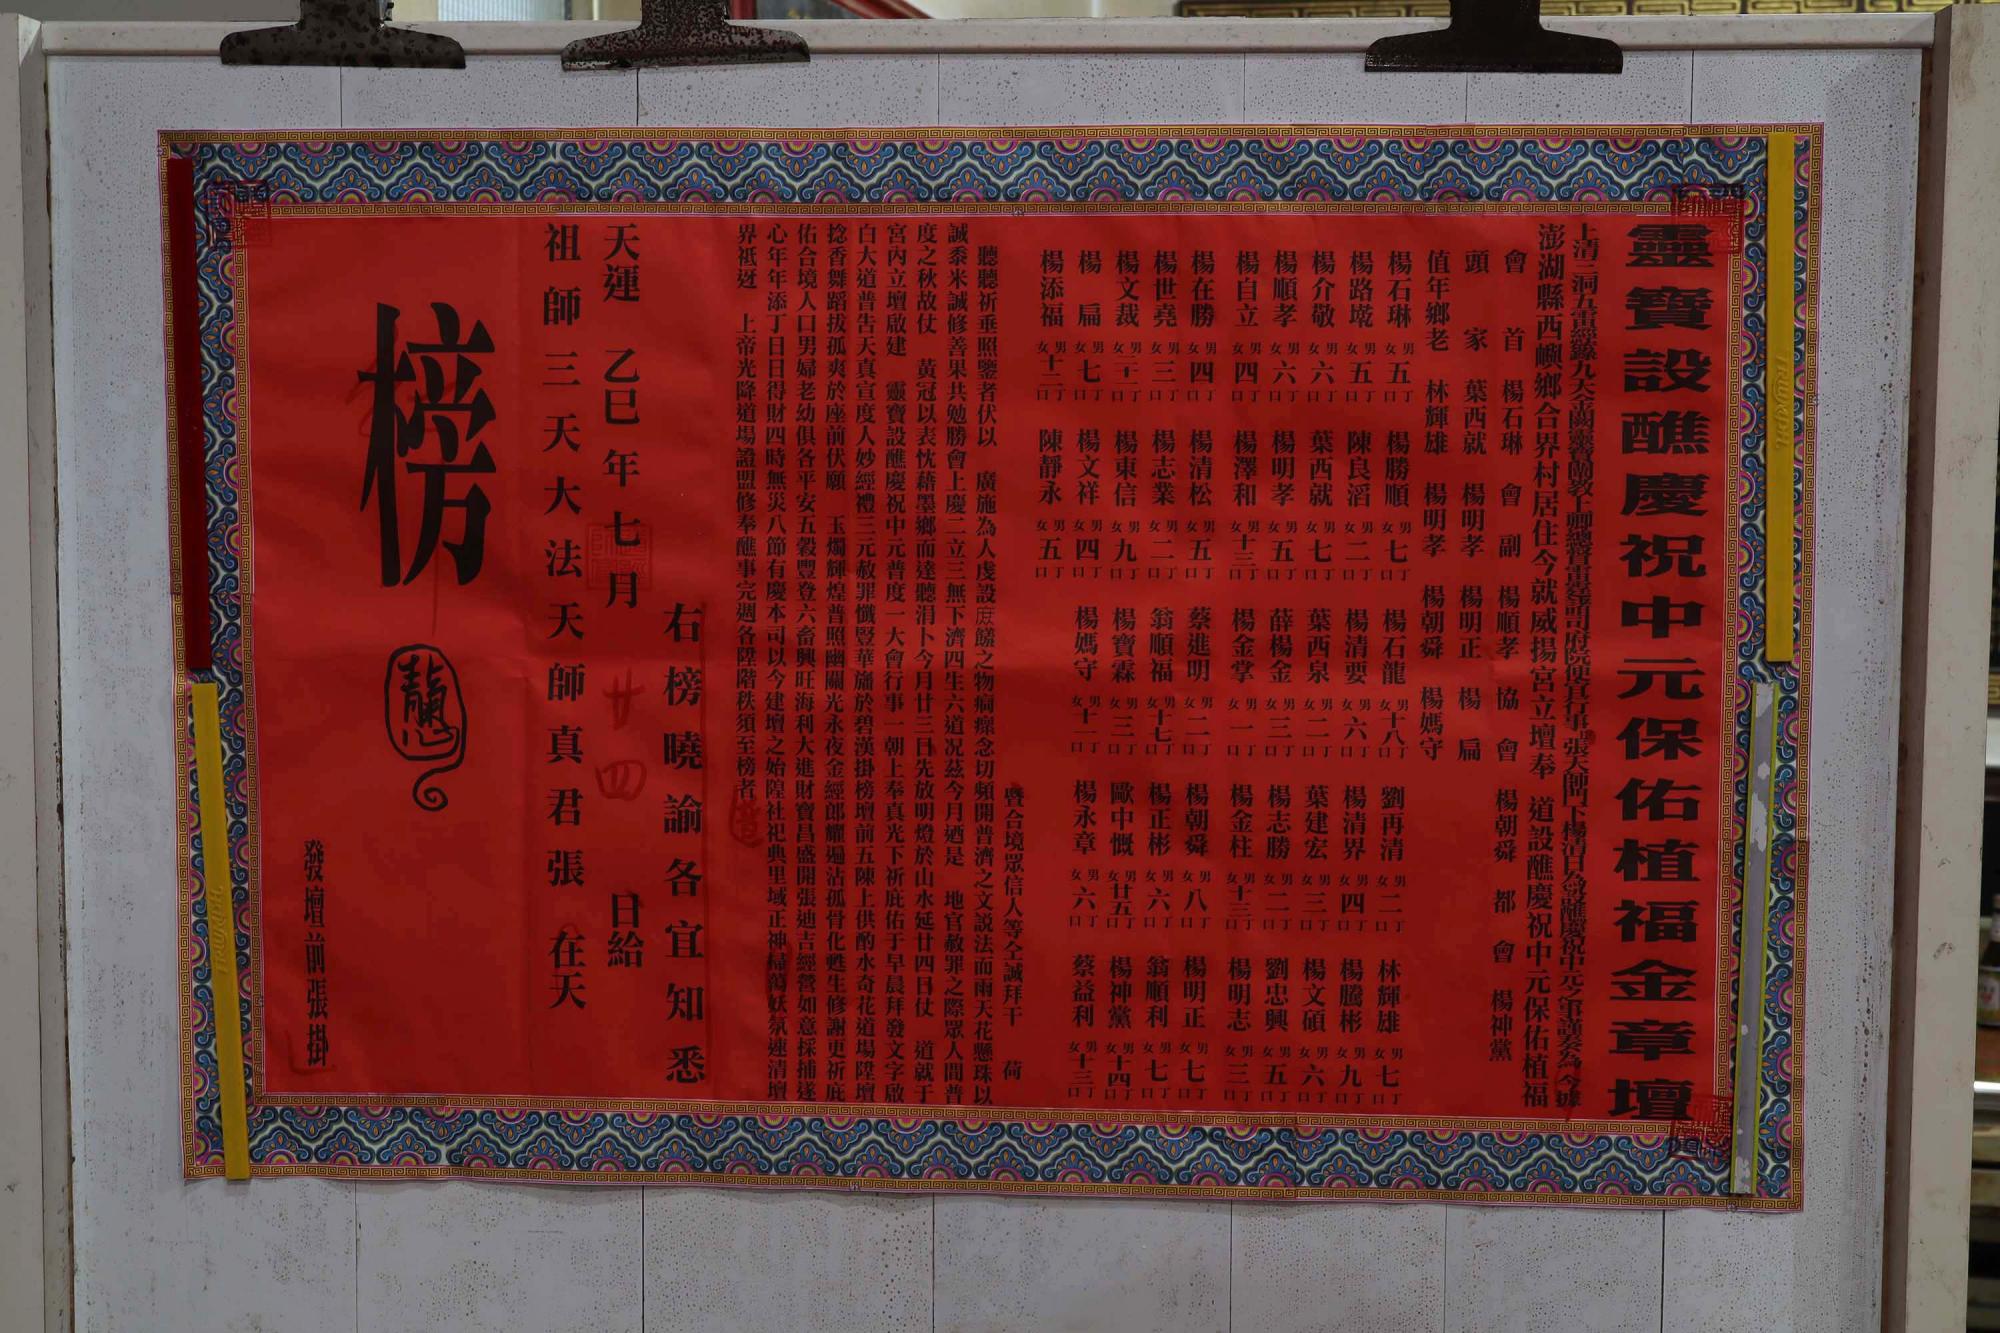 靈寶設醮慶祝中元保佑植福金章壇
上清三洞五雷經籙九天金闕靈寶闡教上卿總督雷霆諸司府院便宜行事張天師門下楊清日為設醮慶祝中元之事謹奏為 今據
澎湖縣西嶼鄉合界村居住今就威揚宮立壇奉 道設醮慶祝中元保佑植福
會首 楊石琳 會副 楊順孝 協會 楊朝舜 都會 楊神黨
頭家 葉西就 楊明孝 楊明正 楊扁
值年鄉老 林輝雄 楊明孝 楊朝舜 楊媽守
楊石琳 男丁女口五 楊勝順 男丁女口七 楊石龍 男丁女口十八 劉再清 男丁女口二 林輝雄 男丁女口七
楊路墘 男丁女口五 陳良滔 男丁女口二 楊清要 男丁女口六 楊清界 男丁女口四 楊騰彬 男丁女口九
楊介敬 男丁女口六 葉西就 男丁女口七 葉西泉 男丁女口二 葉建宏 男丁女口三 楊文碩 男丁女口六
楊順孝 男丁女口六 楊明孝 男丁女口五 薛楊金 男丁女口三 楊志勝 男丁女口二 劉忠興 男丁女口五
楊自立 男丁女口四 楊澤和 男丁女口十三 楊金掌 男丁女口一 楊金柱 男丁女口十三 楊明志 男丁女口三
楊在勝 男丁女口四 楊清松 男丁女口五 蔡進明 男丁女口二 楊朝舜 男丁女口八 楊明正 男丁女口七
楊世堯 男丁女口三 楊志業 男丁女口二 翁順福 男丁女口十七 楊正彬 男丁女口六 翁順利 男丁女口七
楊文裁 男丁女口二十一 楊東信 男丁女口九 楊寶霖 男丁女口三 歐中慨 男丁女口廿五 楊神黨 男丁女口十四
楊扁 男丁女口七 楊文祥 男丁女口四 楊媽守 男丁女口十一 楊永章 男丁女口六 蔡益利 男丁女口十三
楊添福 男丁女口十二 陳靜永 男丁女口五
暨合境眾信人等仝誠拜干 荷
聽聽祈垂照鑒者伏以 廣施為人虔設庶饈之物痌瘝念切頻開普濟之文説法而雨天花懸珠以
誠黍米誠修善果共勉勝會上慶二立三無下濟四生六道况茲今月迺是 地官赦罪之際眾人間普
度之秋故仗 黃冠以表忱藉墨鄉而達聽涓卜今月廿三日先放明燈於山水延廿四日仗 道就于
宮內立壇啟建 靈寶設醮慶祝中元普度一大會行事一朝上奉真光下祈庇佑于早晨拜發文字啟
白大道普告天真宣度人妙經禮三元赦罪懺豎華旛於碧漢掛榜壇前五陳上供酌水奇花道場陞壇
捻香舞蹈拔孤爽於座前伏願 玉燭輝煌普照幽關光永夜金經郎耀遍沾孤骨化甦生修謝更祈庇
佑合境人口男婦老幼俱各平安五穀豐登六畜興旺海利大進財寶昌盛開張迪吉經營如意採捕遂
心年年添丁日日得財四時無災八節有慶本司以今建壇之始隍社祀典里域正神掃蕩妖氛速清壇
界祇迓 上帝光降道場證盟修奉醮事完週各陞階秩須至榜者
右榜曉諭各宜知悉
天運 乙巳年七月 廿四 日給
祖師三天大法天師真君張 在天
榜
發壇前張掛